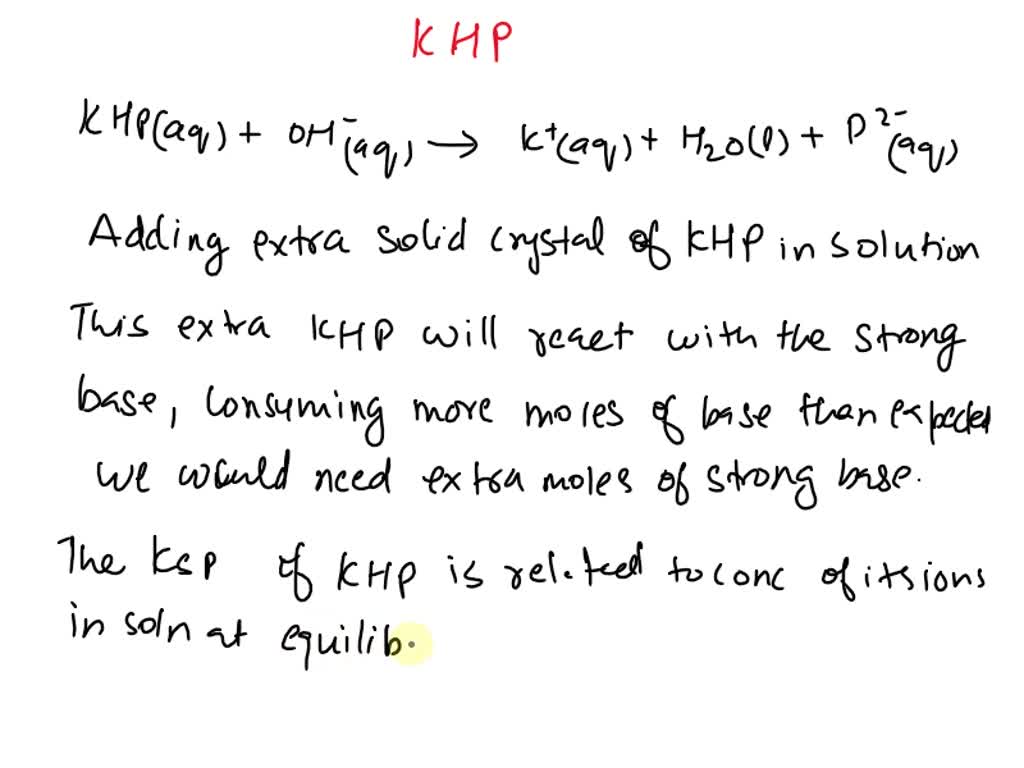 KHP
KHP(aq) + OH⁻(aq) → K⁺(aq) + H₂O(l) + P²⁻(aq)
Adding extra solid crystal of KHP in solution
This extra KHP will react with the strong
base, consuming more moles of base than expected
we would need extra moles of strong base.
The Ksp of KHP is related to conc of its ions
in soln at equilib.